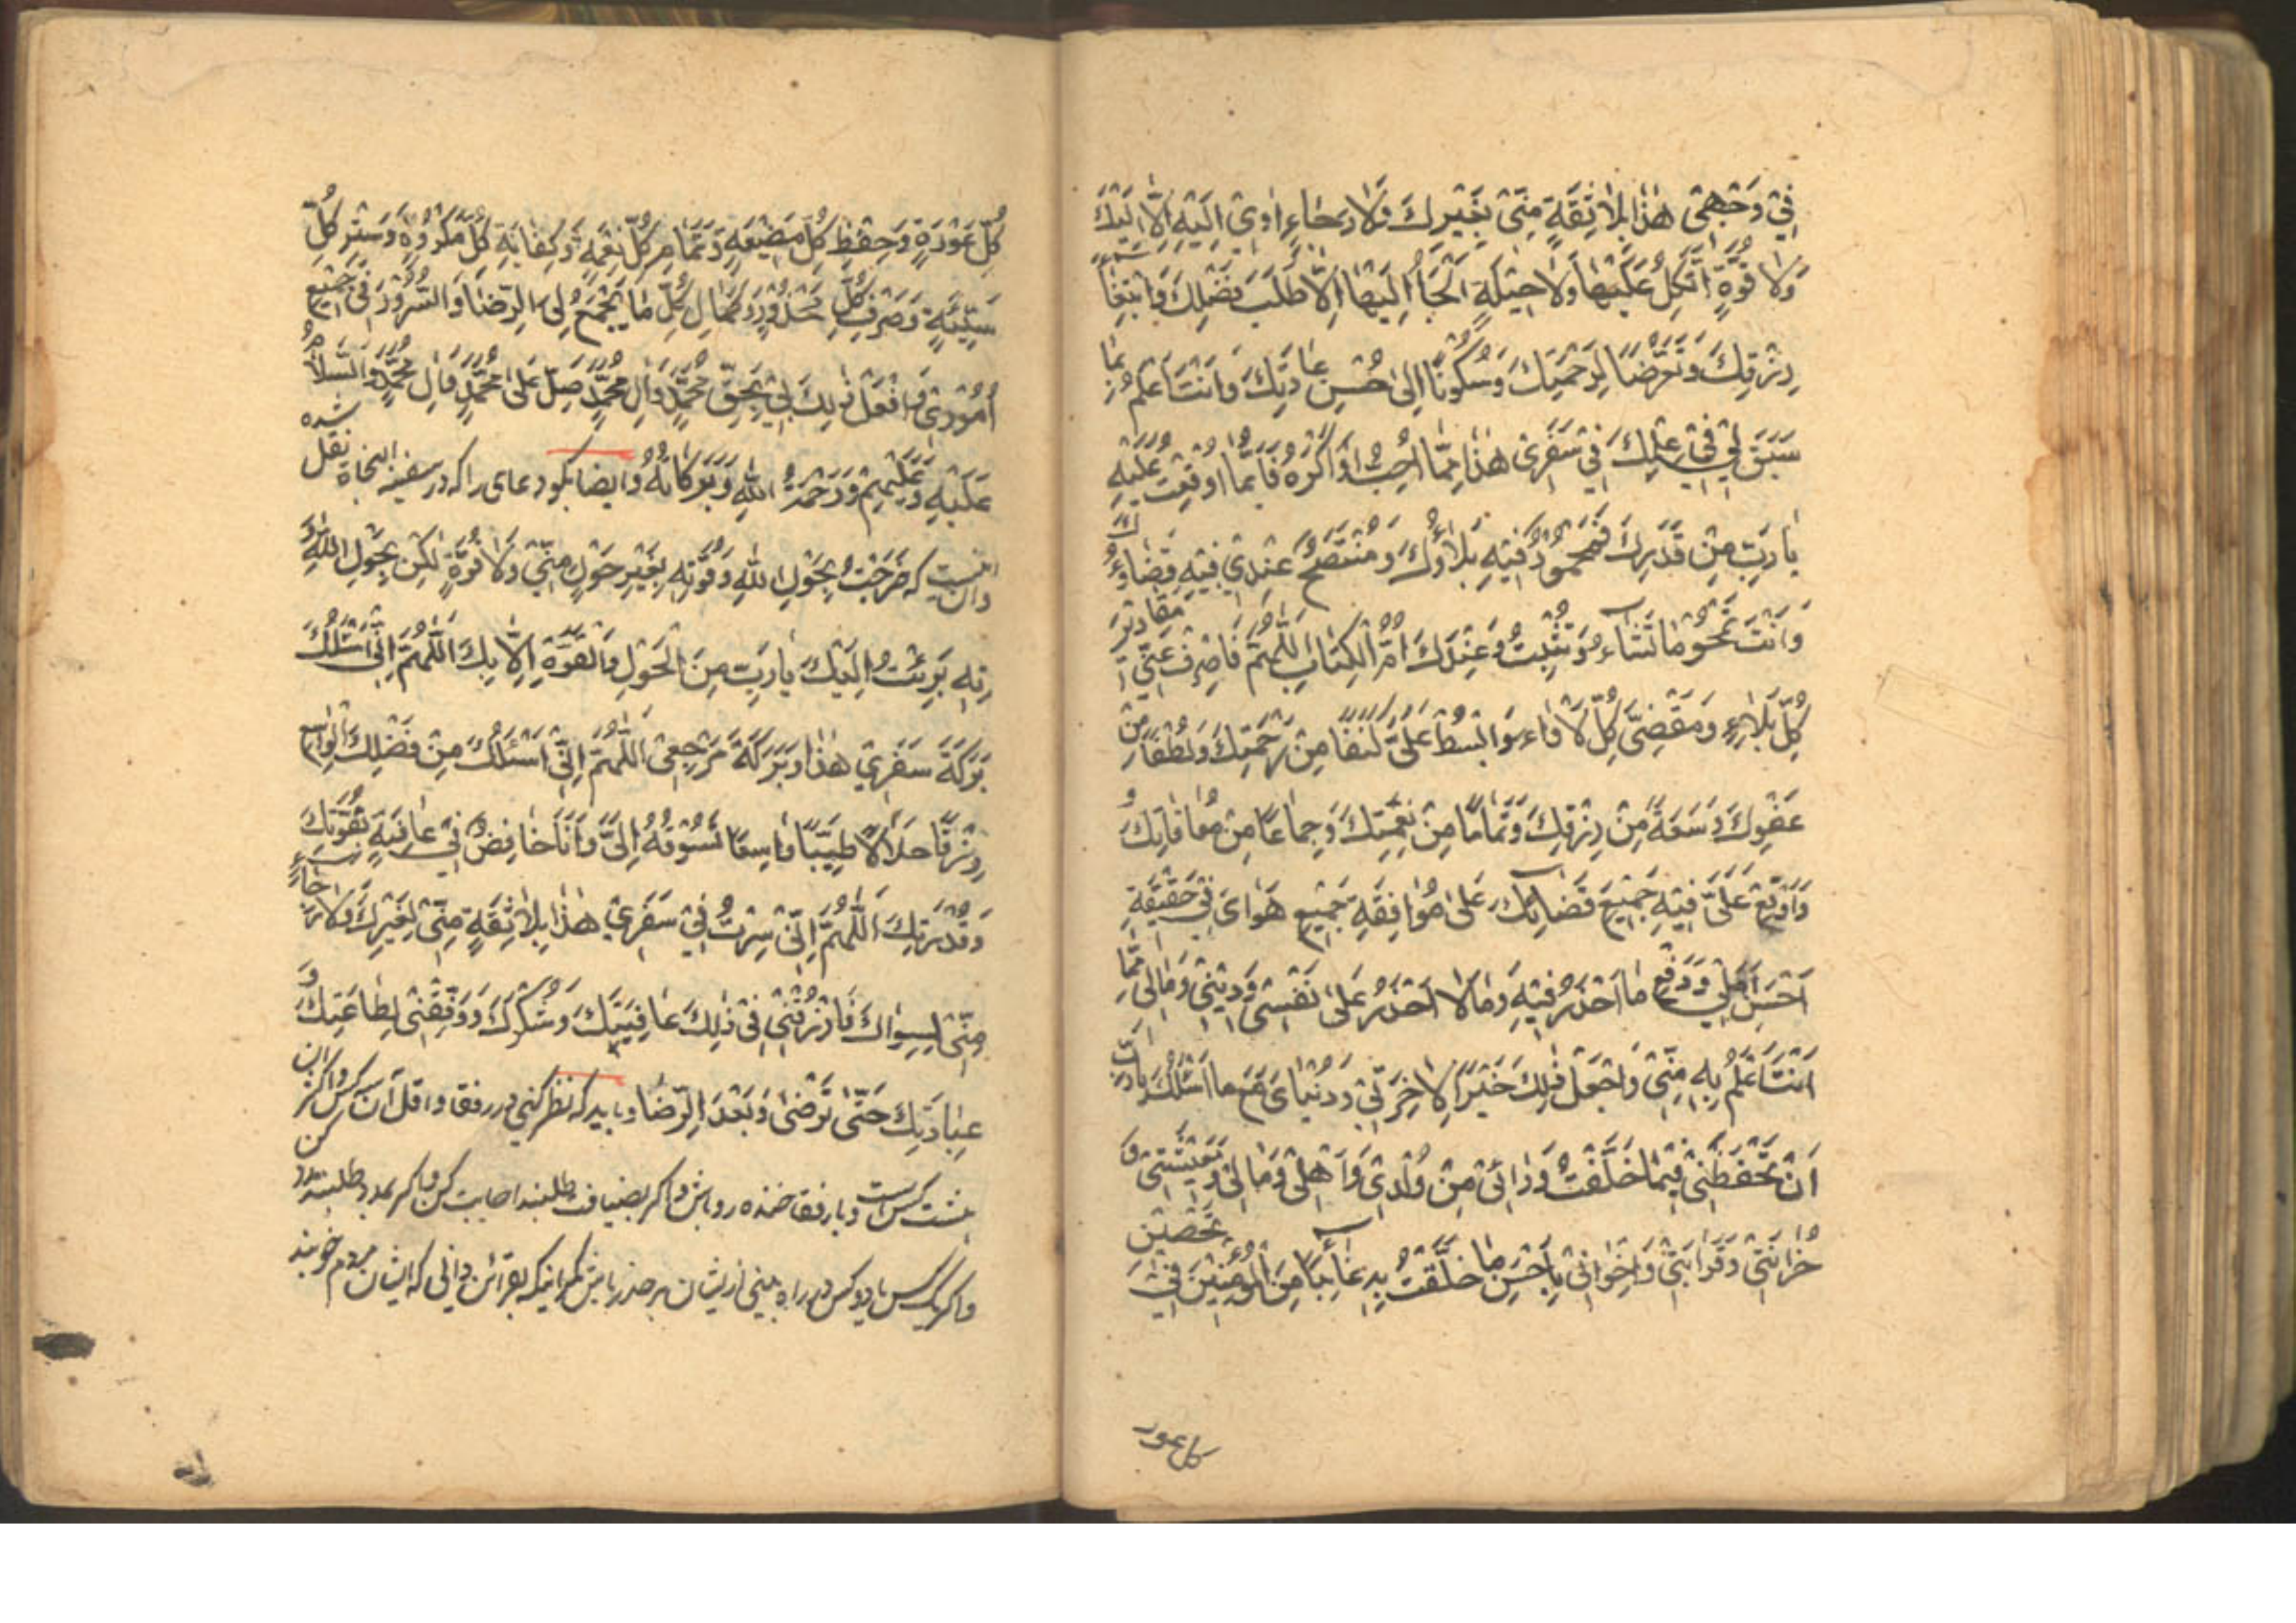 فِي وَجْهِي هٰذَا بِلَا ثِقَةٍ مِنّي بِغَيْرِكَ وَلَا رَجَاءٍ اٰوي اِلَيْهِ اِلَّا اِلَيْكَ
وَلَا قُوَّةٍ اَتَّكِلُ عَلَيْهَا وَلَا حِيْلَةٍ اَلْجَأُ اِلَيْهَا اِلَّا طَلَبَ فَضْلِكَ وَابْتِغَاءَ
رِزْقِكَ وَتَعَرُّضًا لِرَحْمَتِكَ وَسُكُونًا اِلىٰ حُسْنِ عَادَتِكَ وَاَنْتَ اَعْلَمُ بِمَا
سَبَقَ لِي فِي عِلْمِكَ فِي سَفَرِي هٰذَا مِمَّا اُحِبُّ اَوْ اَكْرَهُ فَاِنَّمَا اَوْقَعْتَ عَلَيْهِ
يَا رَبِّ مِنْ قَدَرِكَ فَمَحْمُودٌ فِيْهِ بَلَاؤُكَ وَمُتَّضِحٌ عِنْدِي فِيْهِ قَضَاؤُكَ
وَاَنْتَ تَمْحُو مَا تَشَاءُ وَتُثْبِتُ وَعِنْدَكَ اُمُّ الْكِتَابِ اَللّٰهُمَّ فَاصْرِفْ عَنّي مَقَادِيرَ
كُلِّ بَلَاءٍ وَمَقْضِيَّ كُلِّ لَاْوَاءٍ وَابْسُطْ عَلَيَّ كَنَفًا مِنْ رَحْمَتِكَ وَلُطْفًا مِنْ
عَفْوِكَ وَسَعَةً مِنْ رِزْقِكَ وَتَمَامًا مِنْ نِعْمَتِكَ وَجِمَاعًا مِنْ مُعَافَاتِكَ وَ
وَاَوْقِعْ عَلَيَّ فِيْهِ جَمِيْعَ قَضَائِكَ عَلىٰ مُوَافَقَةِ جَمِيْعِ هَوَايَ فِي حَقِيْقَةِ
اَحْسَنِ اَمَلِي وَدَفْعِ مَا اَحْذَرُ فِيْهِ وَمَا لَا اَحْذَرُ عَلىٰ نَفْسِي وَدِيْنِي وَمَالِي مِمَّا
اَنْتَ اَعْلَمُ بِهِ مِنّي وَاجْعَلْ ذٰلِكَ خَيْرًا لِاٰخِرَتِي وَدُنْيَايَ مَعَ مَا اَسْئَلُكَ يَا رَبِّ
اَنْ تَحْفَظَنِي فِيْمَا خَلَّفْتُ وَرَائِي مِنْ وُلْدِي وَاَهْلِي وَمَالِي وَمَعِيْشَتِي وَ
حُزَانَتِي وَقَرَابَتِي وَاِخْوَانِي بِاَحْسَنِ مَا خَلَّفْتَ بِهِ غَائِبًا مِنَ الْمُؤْمِنِيْنَ فِي تَحْصِيْنِ
كل عورة
كُلِّ عَوْرَةٍ وَحِفْظِ كُلِّ مَضِيْعَةٍ وَتَمَامِ كُلِّ نِعْمَةٍ وَكِفَايَةِ كُلِّ مَكْرُوْهٍ وَسَتْرِ كُلِّ
سَيِّئَةٍ وَصَرْفِ كُلِّ مَحْذُوْرٍ وَكَمَالِ كُلِّ مَا يَجْمَعُ لِيَ الرِّضَا وَالسُّرُوْرَ فِي جَمِيْعِ
اُمُوْرِي وَافْعَلْ ذٰلِكَ بِي بِحَقِّ مُحَمَّدٍ وَاٰلِ مُحَمَّدٍ صَلِّ عَلىٰ مُحَمَّدٍ وَاٰلِ مُحَمَّدٍ وَالسَّلَامُ
عَلَيْهِ وَعَلَيْهِمْ وَرَحْمَةُ اللهِ وَبَرَكَاتُهُ وايضا بكو دعاى را كه در سفينة النجاة نقل شده
وان اينست كه خَرَجْتُ بِحَوْلِ اللهِ وَقُوَّتِهِ بِغَيْرِ حَوْلٍ مِنّي وَلَا قُوَّةٍ لٰكِنْ بِحَوْلِ اللهِ وَقُوَّ
تِهِ بَرِئْتُ اِلَيْكَ يَا رَبِّ مِنَ الْحَوْلِ وَالْقُوَّةِ اِلَّا بِكَ اَللّٰهُمَّ اِنّي اَسْئَلُكَ
بَرَكَةَ سَفَرِي هٰذَا وَبَرَكَةَ مَرْجِعِي اَللّٰهُمَّ اِنّي اَسْئَلُكَ مِنْ فَضْلِكَ الْوَاسِعِ
رِزْقًا حَلَالًا طَيِّبًا وَاسِعًا تَسُوْقُهُ اِلَيَّ وَاَنَا خَافِضٌ فِي عَافِيَةٍ بِقُوَّتِكَ
وَقُدْرَتِكَ اَللّٰهُمَّ اِنّي سِرْتُ فِي سَفَرِي هٰذَا بِلَا ثِقَةٍ مِنّي لِغَيْرِكَ وَلَا رَجَاءٍ
مِنّي لِسِوَاكَ فَارْزُقْنِي فِي ذٰلِكَ عَافِيَتَكَ وَشُكْرَكَ وَوَفِّقْنِي لِطَاعَتِكَ وَ
عِبَادَتِكَ حَتّىٰ تَرْضىٰ وَبَعْدَ الرِّضَا وبايد كه نظر كنى در رفقا واقل آن سه كس واكثر ان
هشت كس است وبا رفقا خنده رو باش واكر بضيافت طلبند اجابت كن واكر مدد طلبند مدد كن
واكر يك كس يا دو كس در راه بينى از ايشان بر حذر باش مكر اينكه بقرائن دانى كه ايشان مردم خوبند